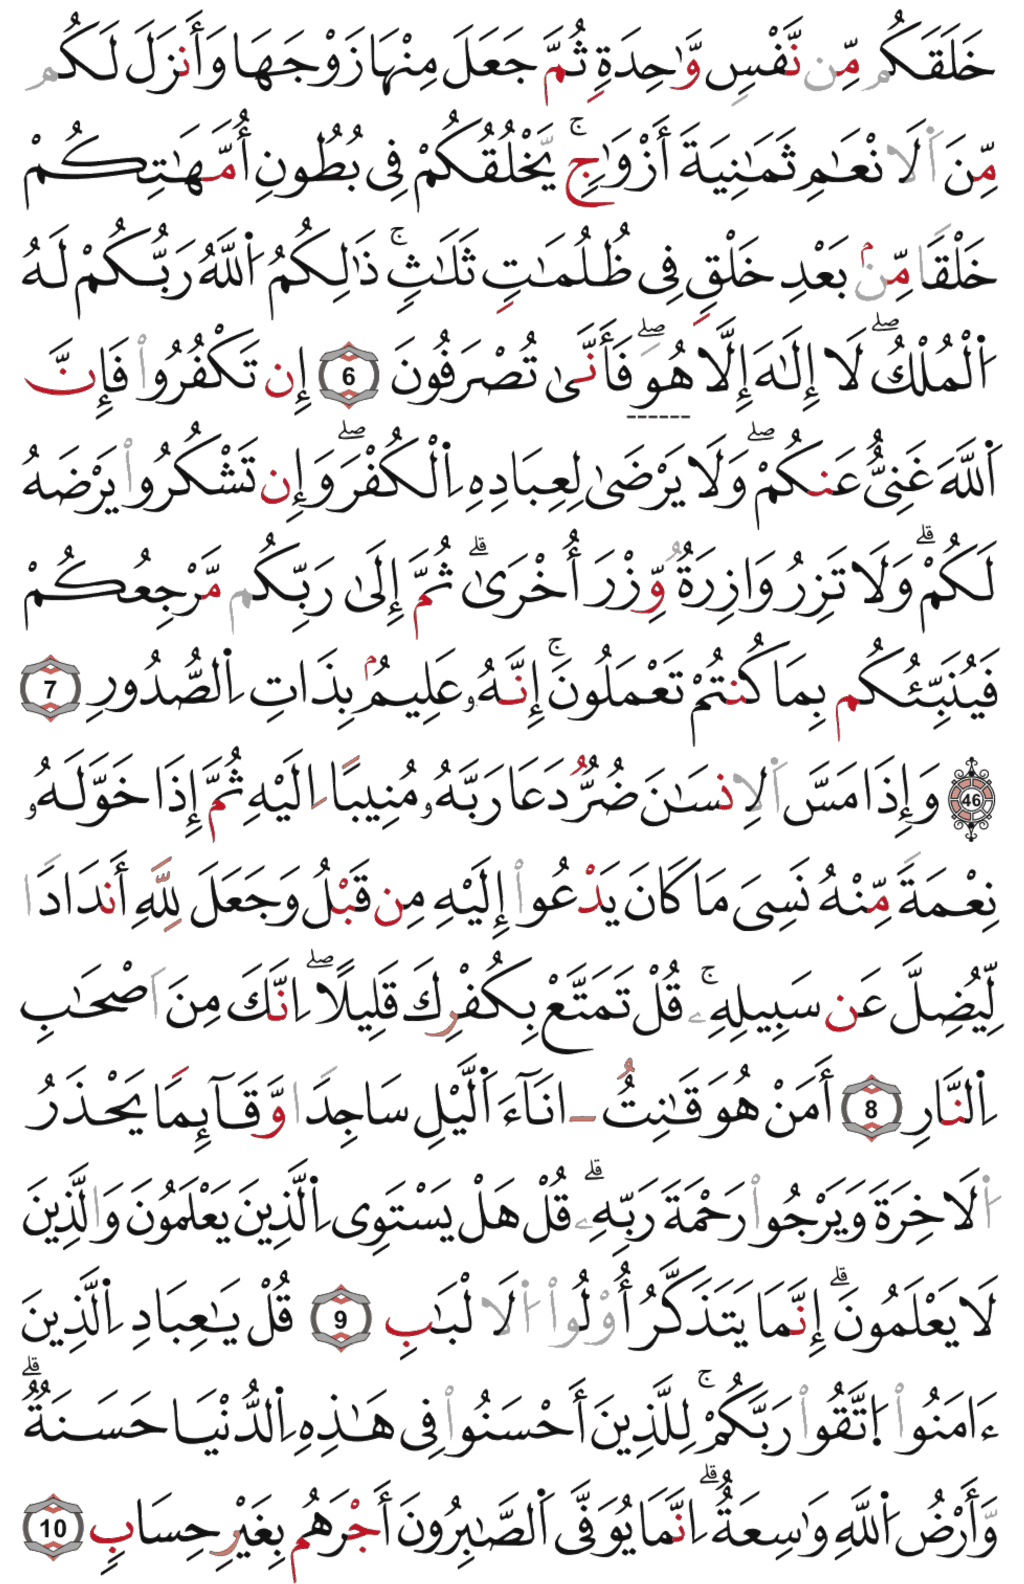 خَلَقَكُم مِّن نَّفْسٍ وَّٰحِدَةٍ ثُمَّ جَعَلَ مِنْهَا زَوْجَهَا وَأَنزَلَ لَكُم
مِّنَ اَ۬لَانْعَٰمِ ثَمَٰنِيَةَ أَزْوَٰجٍۚ يَّخْلُقُكُمْ فِى بُطُونِ أُمَّهَٰتِكُمْ
خَلْقًا مِّنۢ بَعْدِ خَلْقٍ فِى ظُلُمَٰتٍ ثَلَٰثٍۚ ذَٰلِكُمُ اُ۬للَّهُ رَبُّكُمْ لَهُ
اُ۬لْمُلْكُۖ لَا إِلَٰهَ إِلَّا هُوَۖ فَأَنَّىٰ تُصْرَفُونَ 6 إِن تَكْفُرُوا۟ فَإِنَّ
اَ۬للَّهَ غَنِىٌّ عَنكُمْۖ وَلَا يَرْضَىٰ لِعِبَادِهِ اِ۬لْكُفْرَۖ وَإِن تَشْكُرُوا۟ يَرْضَهُ
لَكُمْۗ وَلَا تَزِرُ وَازِرَةٌ وِّزْرَ أُخْرَىٰۗ ثُمَّ إِلَىٰ رَبِّكُم مَّرْجِعُكُمْ
فَيُنَبِّئُكُم بِمَا كُنتُمْ تَعْمَلُونَۚ إِنَّهُۥ عَلِيمُۢ بِذَاتِ اِ۬لصُّدُورِ 7
46 وَإِذَا مَسَّ اَ۬لِانسَٰنَ ضُرٌّ دَعَا رَبَّهُۥ مُنِيبًا اِلَيْهِ ثُمَّ إِذَا خَوَّلَهُۥ
نِعْمَةً مِّنْهُ نَسِىَ مَا كَانَ يَدْعُوا۟ إِلَيْهِ مِن قَبْلُ وَجَعَلَ لِلَّهِ أَندَادًا
لِّيُضِلَّ عَن سَبِيلِهِۦۚ قُلْ تَمَتَّعْ بِكُفْرِكَ قَلِيلًاۖ اِنَّكَ مِنَ اَصْحَٰبِ
اِ۬لنَّارِ 8 أَمَنْ هُوَ قَٰنِتٌ ـانَآءَ اَ۬لَّيْلِ سَاجِدًا وَّقَآئِمًا يَحْذَرُ
اُ۬لَاخِرَةَ وَيَرْجُوا۟ رَحْمَةَ رَبِّهِۦۗ قُلْ هَلْ يَسْتَوِى اِ۬لَّذِينَ يَعْلَمُونَ وَالَّذِينَ
لَا يَعْلَمُونَۗ إِنَّمَا يَتَذَكَّرُ أُوْلُوا۟ اُ۬لَالْبَٰبِ 9 قُلْ يَٰعِبَادِ اِ۬لَّذِينَ
ءَامَنُوا۟ اُ۪تَّقُوا۟ رَبَّكُمْۚ لِلَّذِينَ أَحْسَنُوا۟ فِى هَٰذِهِ اِ۬لدُّنْيَا حَسَنَةٌۗ
وَّأَرْضُ اُ۬للَّهِ وَاسِعَةٌۗ اِنَّمَا يُوَفَّى اَ۬لصَّٰبِرُونَ أَجْرَهُم بِغَيْرِ حِسَابٍ 10